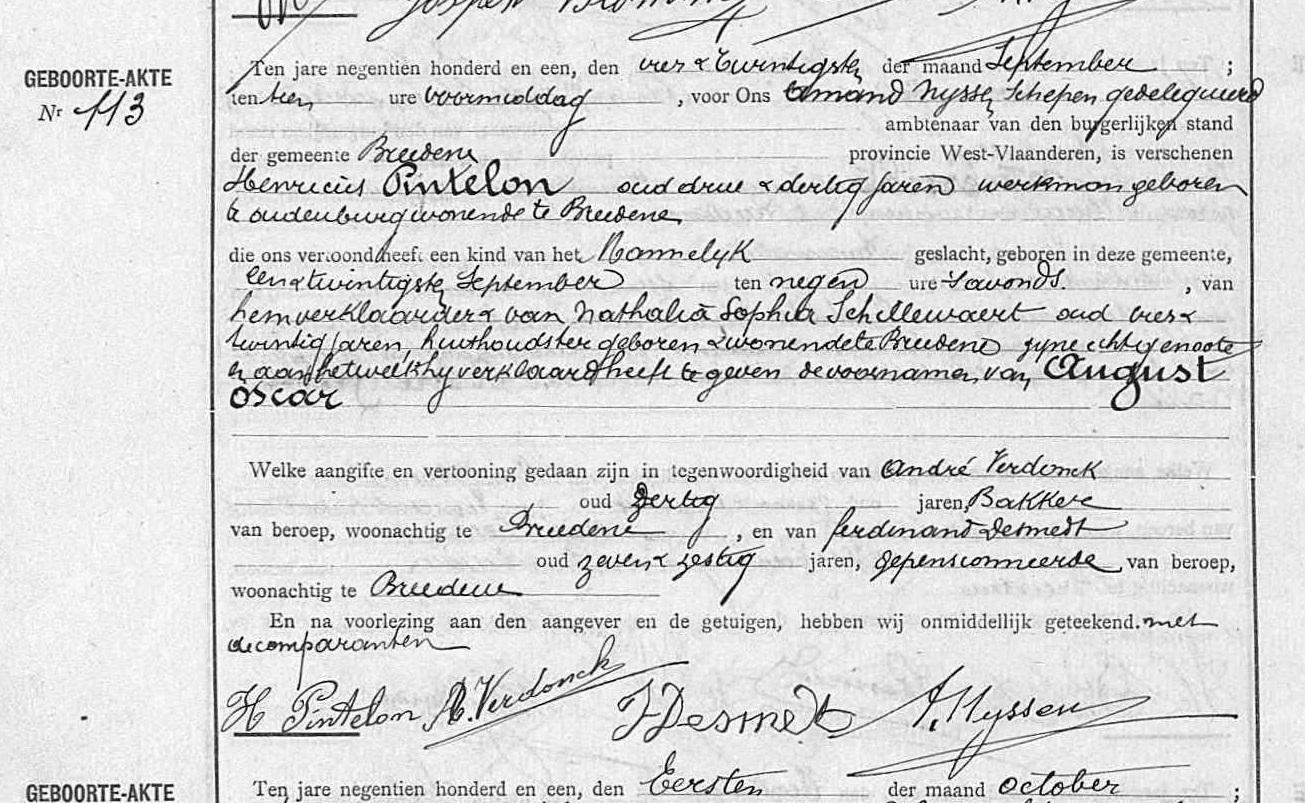 GEBOORTE-AKTE
Nr 113
Ten jare negentien honderd en een, den vier & twintigste der maand September ;
ten tien ure voormiddag , voor Ons Amand Nyssen Schepen gedelegueerd
ambtenaar van den burgerlijken stand
der gemeente Breedene provincie West-Vlaanderen, is verschenen
Henricus Pintelon oud drie & dertig jaren werkman geboren
te oudenburg wonende te Breedene
die ons vertoond heeft een kind van het Mannelyk geslacht, geboren in deze gemeente,
een & twintigste September ten negen ure s'avonds , van
hem verklaarder & van Nathalia Sophia Schillewaert oud vier &
twintig jaren, huishoudster geboren & wonende te Breedene zyne echtgenoote
en aan hetwelk hy verklaard heeft te geven de voornamen van August
Oscar
Welke aangifte en vertooning gedaan zijn in tegenwoordigheid van André Verdonck
oud Dertig jaren, Bakker
van beroep, woonachtig te Breedene , en van ferdinand Desmedt
oud zeven & zestig jaren, gepensionneerde van beroep,
woonachtig te Breedene
En na voorlezing aan den aangever en de getuigen, hebben wij onmiddellijk geteekend. met
de comparanten
H Pintelon A. Verdonck F Desmedt A. Nyssen
GEBOORTE-AKTE
Ten jare negentien honderd en een, den Eersten der maand october ;